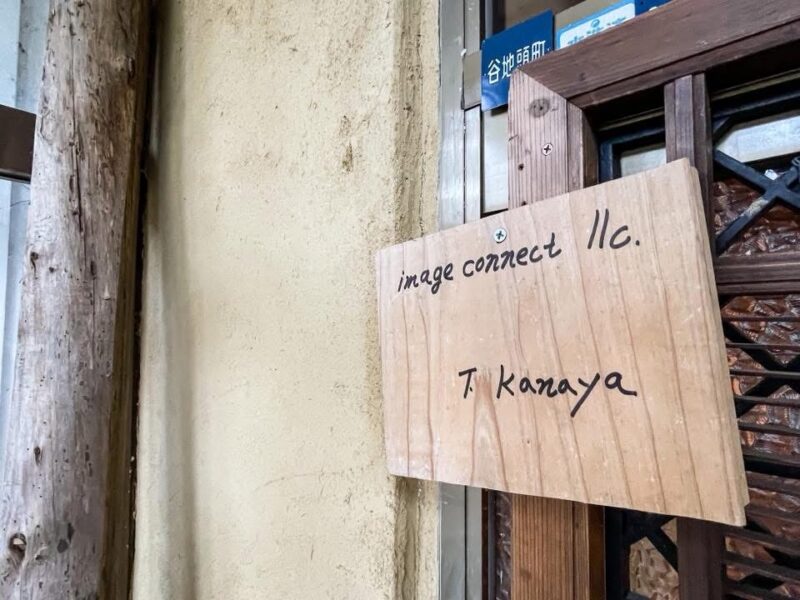 谷地頭町
image connect llc.
T. Kanaya